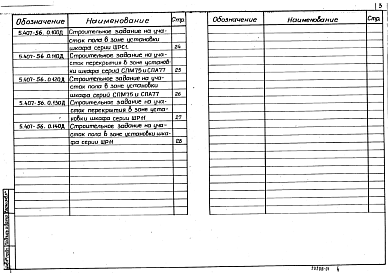 3
Обозначение Наименование Стр.
5.407-56. 0.110Д Строительное задание на уча-
сток пола в зоне установки
шкафа серии ШРС1 24
5.407-56. 0.110Д Строительное задание на уча-
сток перекрытия в зоне установ
ки шкафа серий СПМ75 и СПА77 25
5.407-56. 0.120Д Строительное задание на уча-
сток пола в зоне установки
шкафа серий СПМ75 и СПА77 26
5.407-56. 0.130Д Строительное задание на уча-
сток перекрытия в зоне уста-
новки шкафа серии ШР11 27
5.407-56. 0.140Д Строительное задание на уча-
сток пола в зоне установки шка-
фа серии ШР11 28
Обозначение Наименование Стр.
4